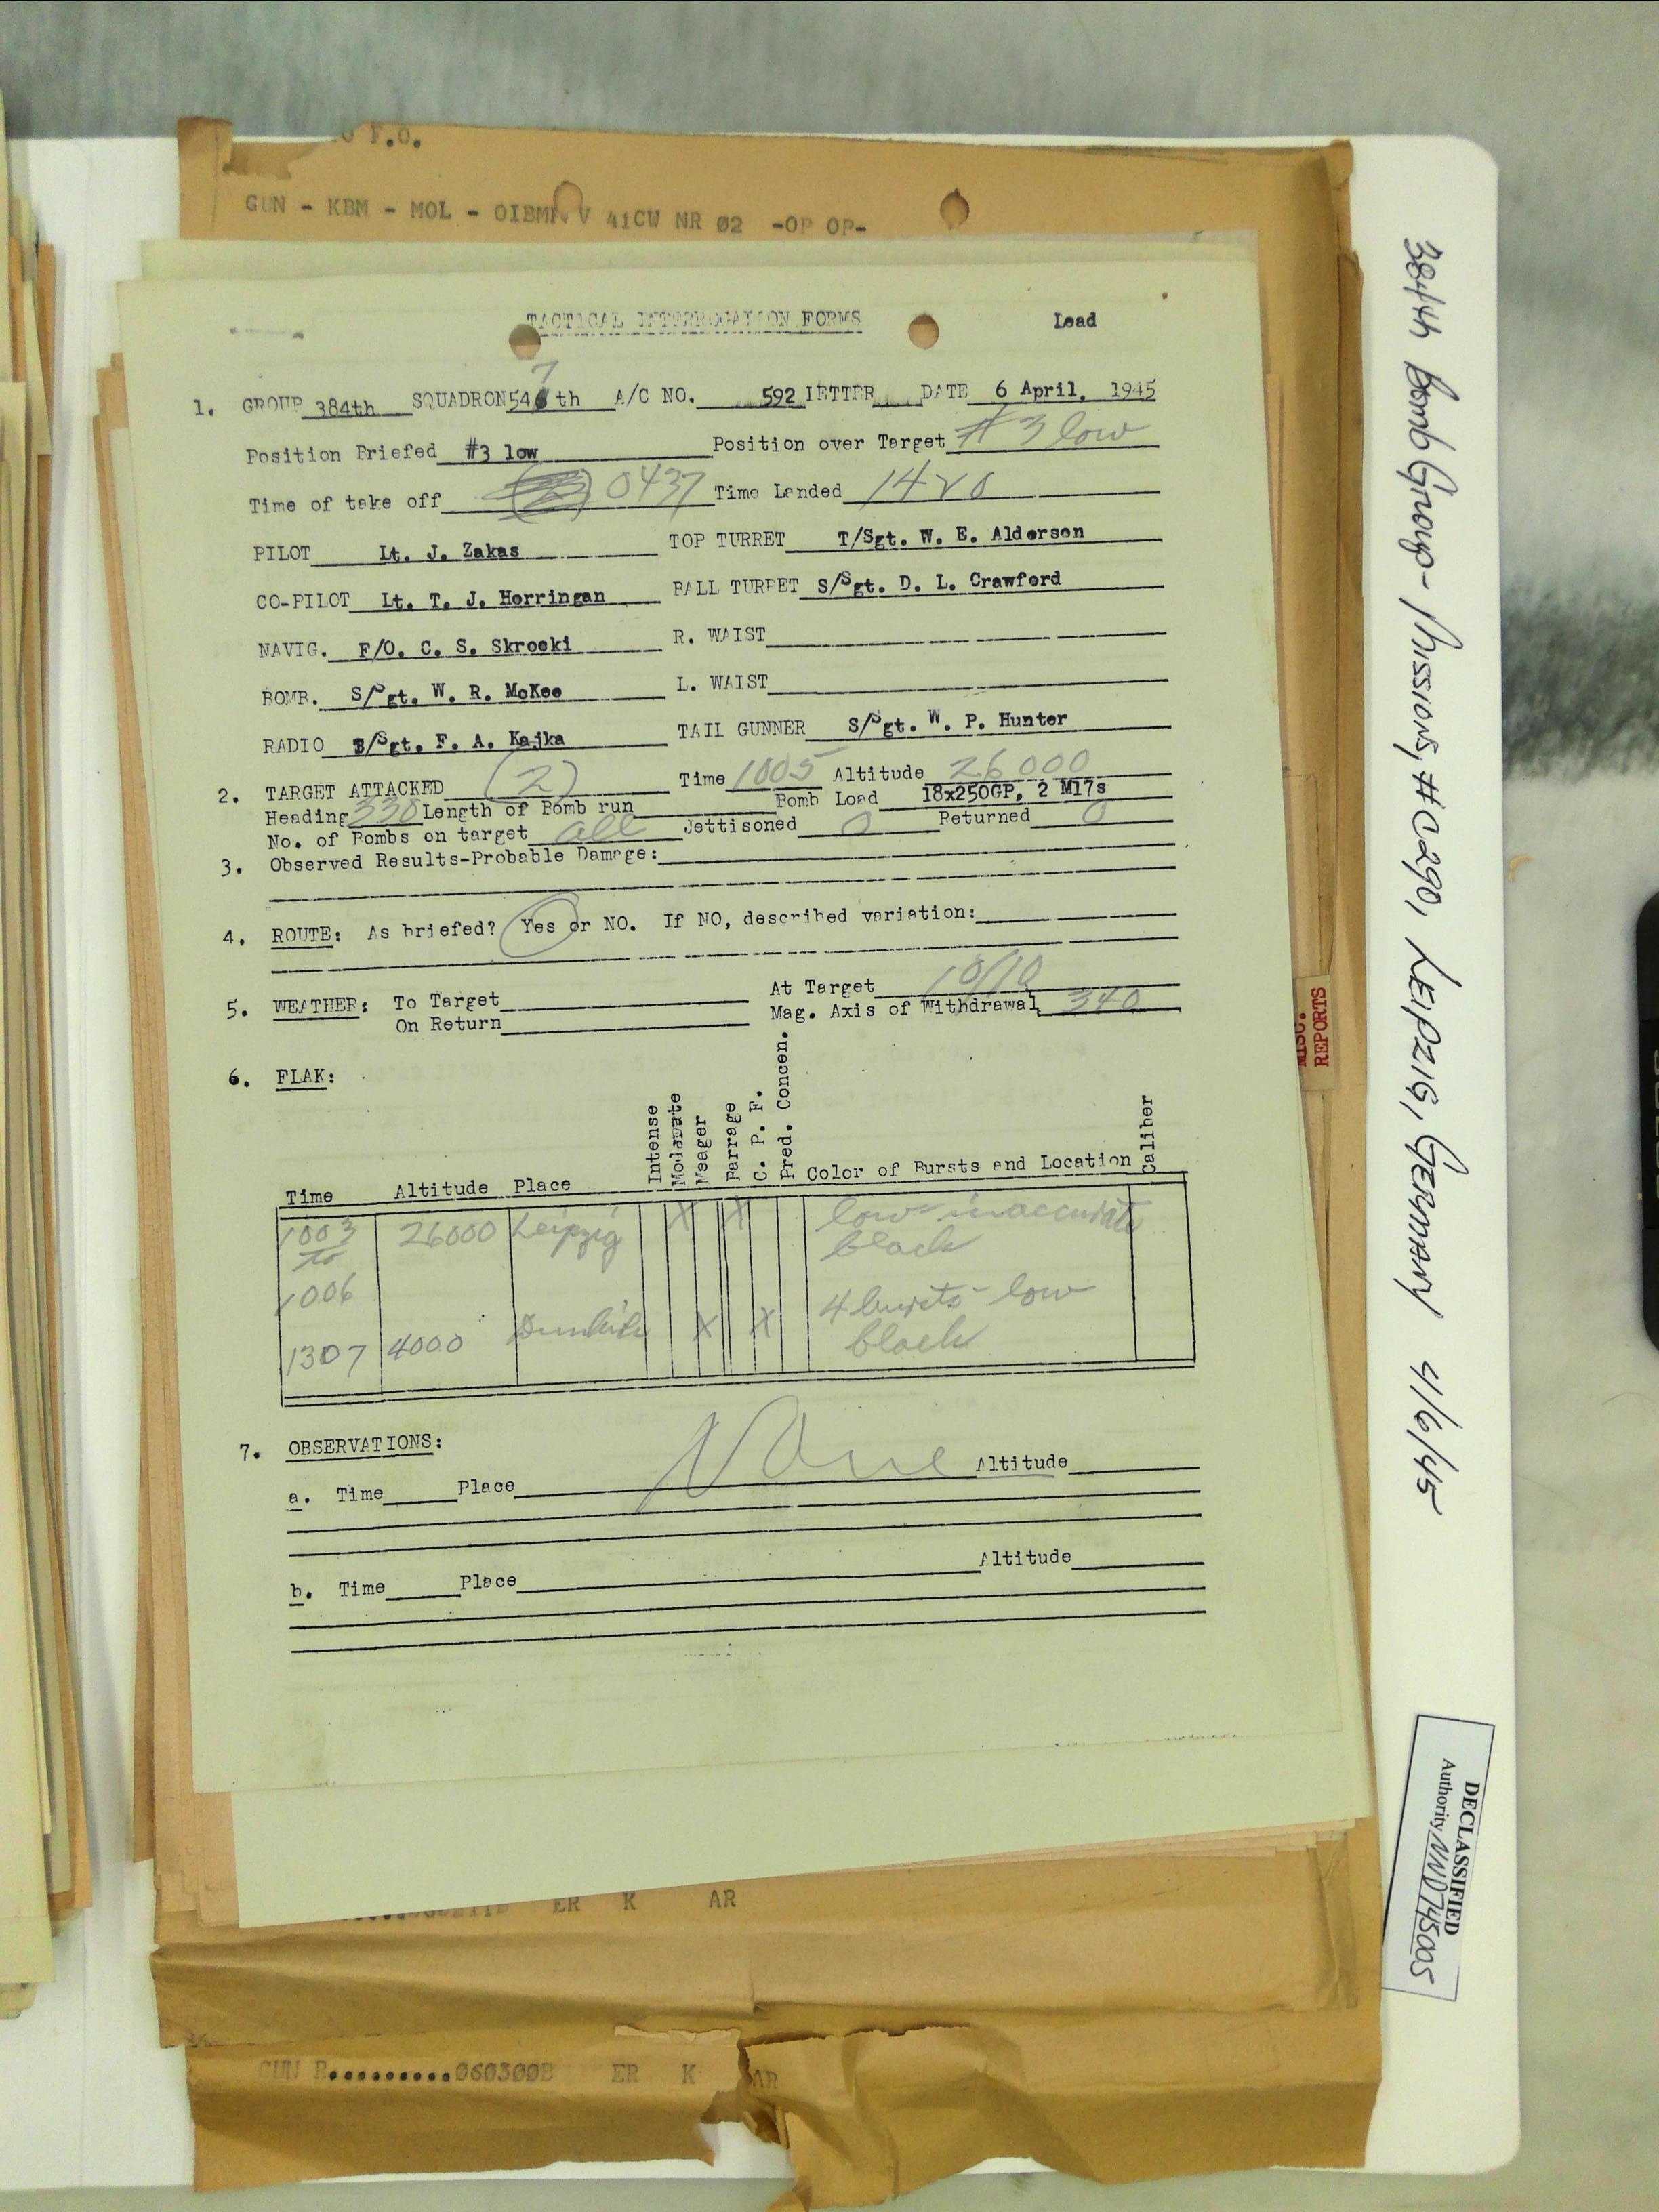 F.O.
GUN - KBM - MOL - OIBMN V 41CW NR 02 -OP OP-
TACTICAL INTERROGATION FORMS Lead
1. GROUP 384th SQUADRON 547th A/C NO. 592 LETTER DATE 6 April, 1945
Position Briefed #3 low Position over Target #3 low
Time of take off 0437 Time Landed 1420
PILOT Lt. J. Zakas TOP TURRET T/Sgt. W. E. Alderson
CO-PILOT Lt. T. J. Horringan BALL TURRET S/Sgt. D. L. Crawford
NAVIG. F/O. C. S. Skrocki R. WAIST
BOMB. S/Sgt. W. R. McKee L. WAIST
RADIO S/Sgt. F. A. Kajka TAIL GUNNER S/Sgt. W. P. Hunter
2. TARGET ATTACKED (2) Time 1005 Altitude 26000
Heading 330 Length of Bomb run Bomb Load 18x250GP, 2 M17s
No. of Bombs on target all Jettisoned 0 Returned 0
3. Observed Results-Probable Damage:
4. ROUTE: As briefed? Yes or NO. If NO, described variation:
5. WEATHER: To Target At Target 10/10
On Return Mag. Axis of Withdrawal 340
6. FLAK:
Time Altitude Place Intense Moderate Meager Barrage C. P. F. Pred. Concen. Color of Bursts and Location Caliber
1003 26000 Leipzig X X low inaccurate
to black
1006
4 bursts - low
1307 4000 X X black
7. OBSERVATIONS:
None
a. Time Place Altitude
b. Time Place Altitude
ER K AR
GUN R..........060300B ER K AR
MISC. REPORTS
384th Bomb Group - Missions, #C290, LEIPZIG, GERMANY 4/6/45
DECLASSIFIED
Authority NND745005